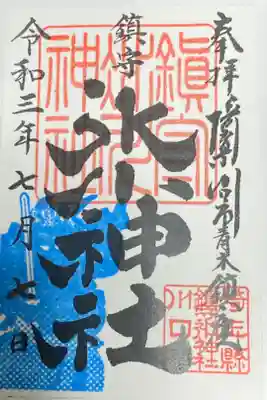 奉拝 川口市青木鎮座
鎮守
氷川神社
神社
令和三年七月七日
鎮守
氷川
神社
埼玉県
鎮守氷川神社
川口